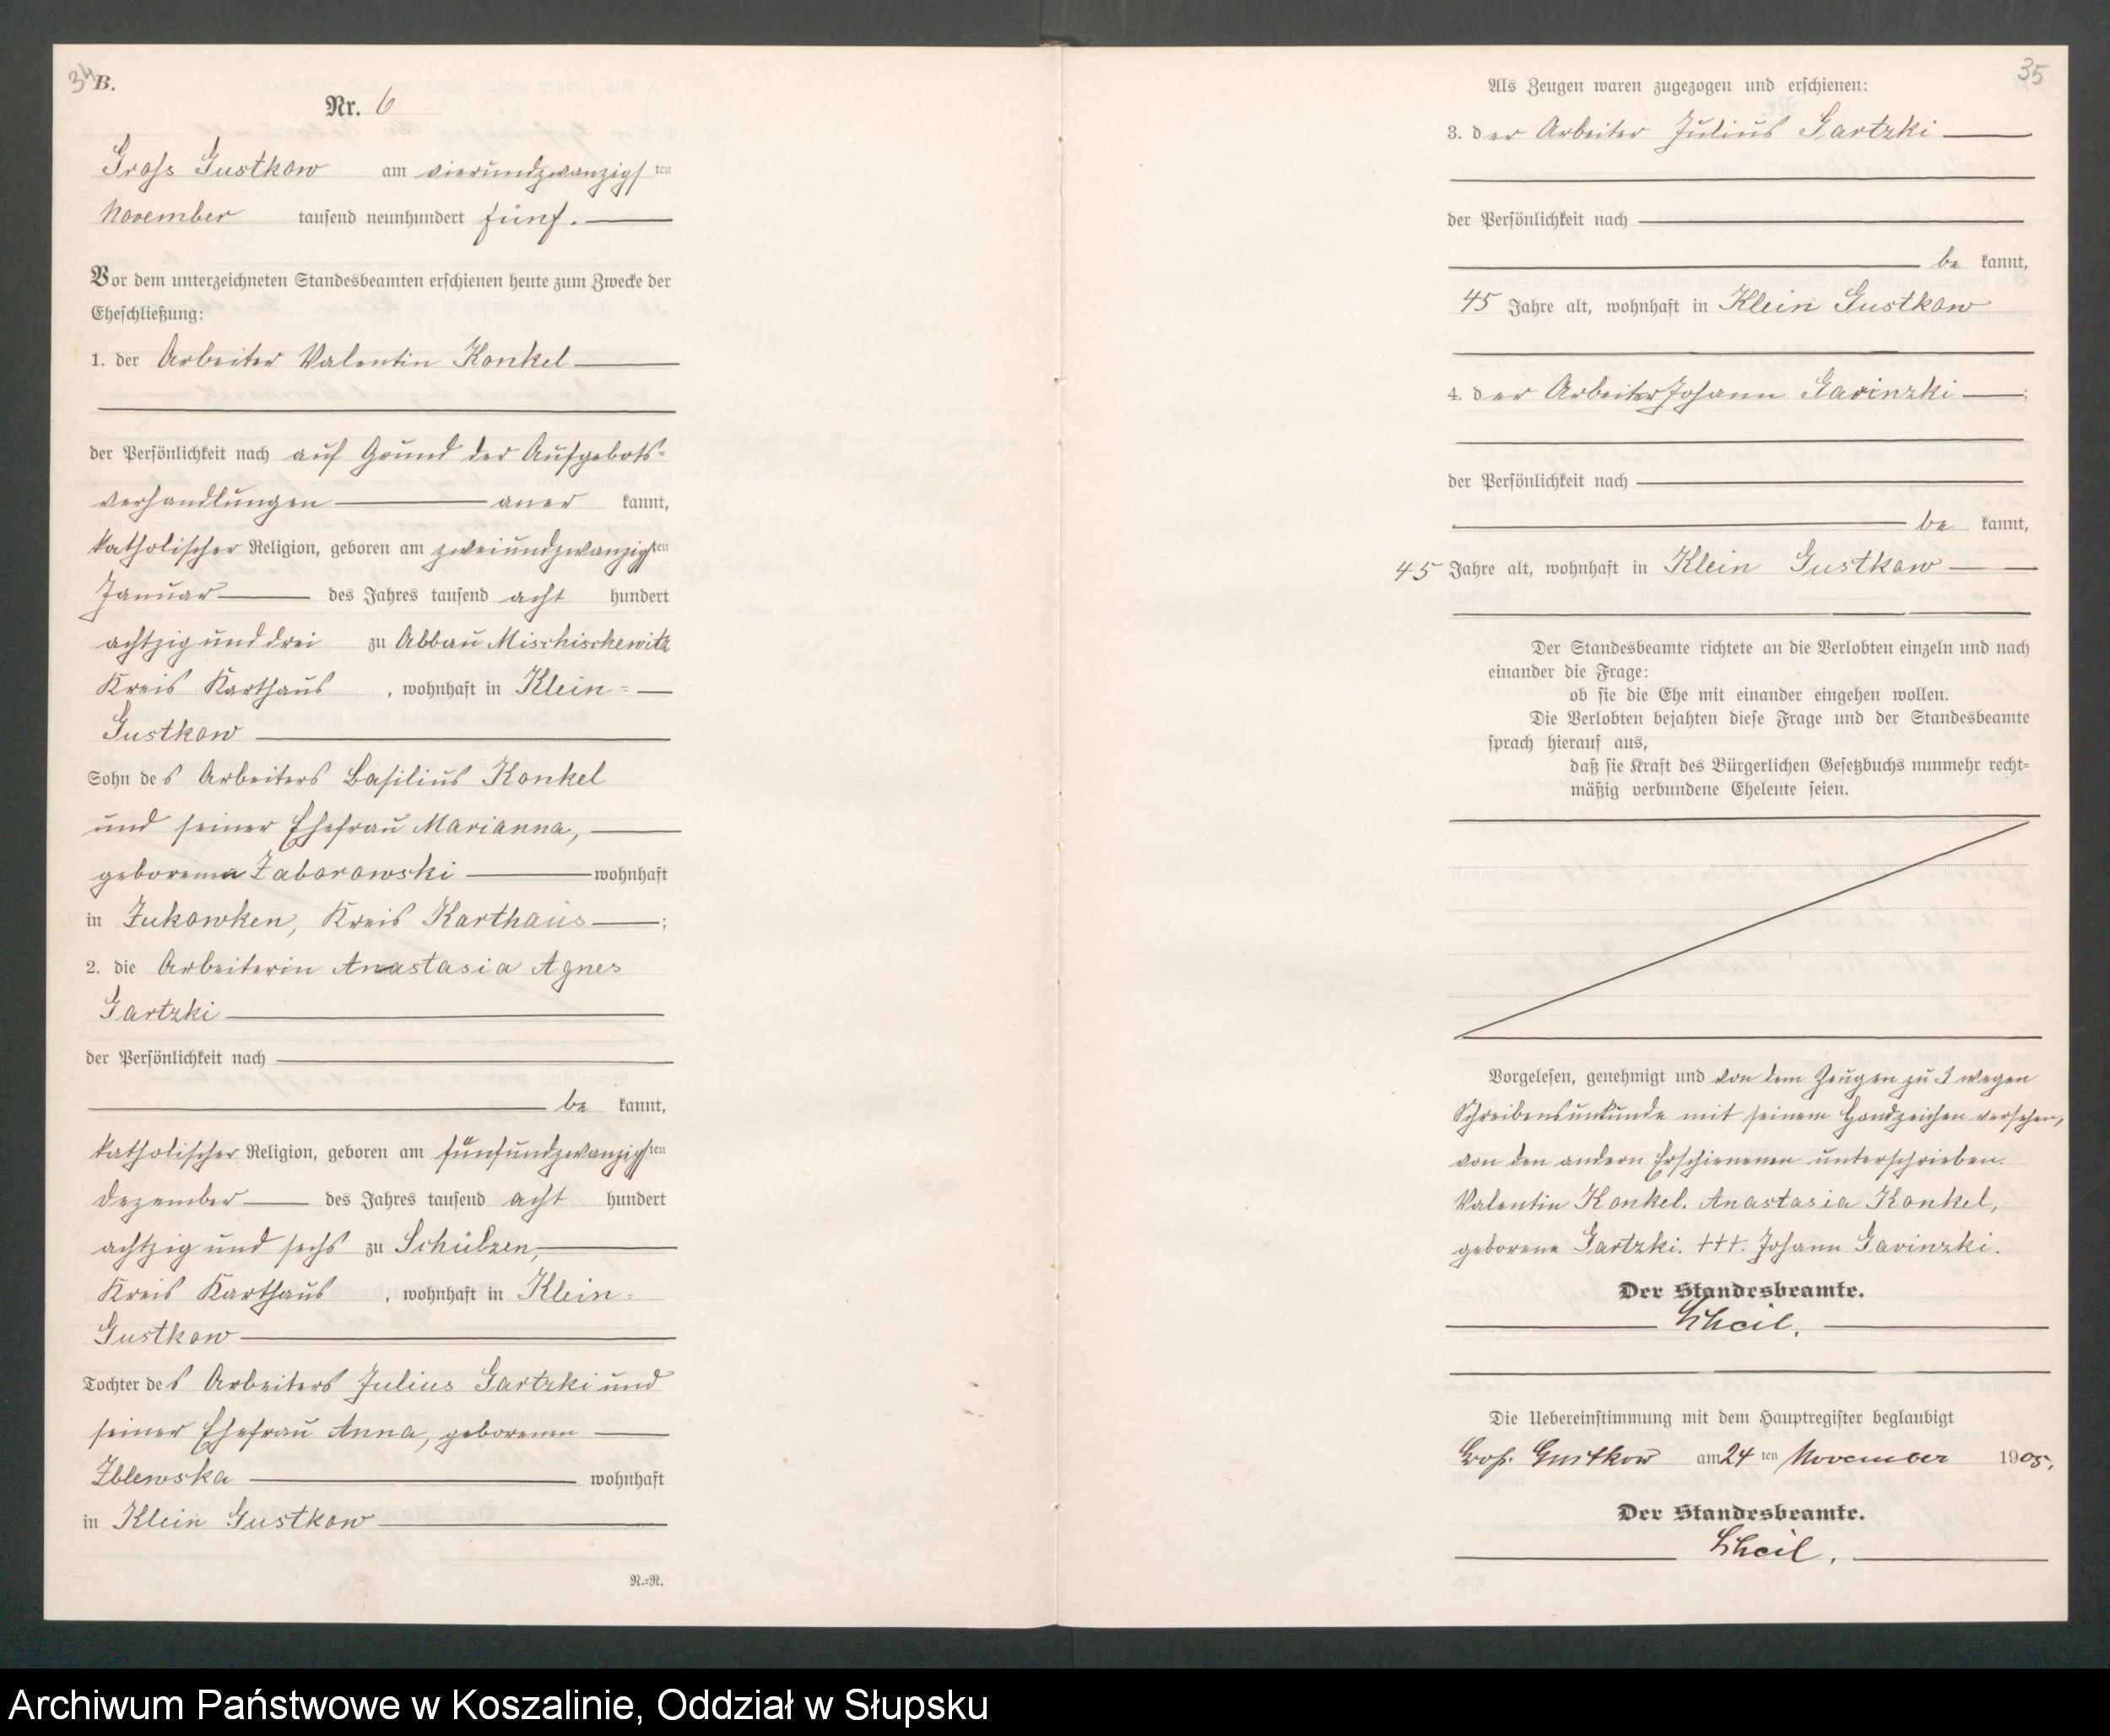 34
B.
Nr. 6
Gross Gustkow am vierundzwanzigsten
November tausend neunhundert fünf.
Vor dem unterzeichneten Standesbeamten erschienen heute zum Zwecke der
Eheschließung:
1. der Arbeiter Valentin Konkel
der Persönlichkeit nach auf Grund der Aufgebots-
verhandlungen aner kannt,
katholischer Religion, geboren am zweiundzwanzigsten
Januar des Jahres tausend acht hundert
achtzig und drei zu Abbau Mischischewitz
Kreis Karthaus, wohnhaft in Klein-
Gustkow
Sohn des Arbeiters Basilius Konkel
und seiner Ehefrau Marianna,
geborenen Zaborowski wohnhaft
in Zukowken, Kreis Karthaus;
2. die Arbeiterin Anastasia Agnes
Gartzki
der Persönlichkeit nach
be kannt,
katholischer Religion, geboren am fünfundzwanzigsten
Dezember des Jahres tausend acht hundert
achtzig und sechs zu Schülzen,
Kreis Karthaus, wohnhaft in Klein-
Gustkow
Tochter des Arbeiters Julius Gartzki und
seiner Ehefrau Anna, geborenen
Zblewska wohnhaft
in Klein Gustkow
N.-R.
35
Als Zeugen waren zugezogen und erschienen:
3. der Arbeiter Julius Gartzki
der Persönlichkeit nach
be kannt,
45 Jahre alt, wohnhaft in Klein Gustkow
4. der Arbeiter Johann Gavinzki;
der Persönlichkeit nach
be kannt,
45 Jahre alt, wohnhaft in Klein Gustkow
Der Standesbeamte richtete an die Verlobten einzeln und nach
einander die Frage:
ob sie die Ehe mit einander eingehen wollen.
Die Verlobten bejahten diese Frage und der Standesbeamte
sprach hierauf aus,
daß sie Kraft des Bürgerlichen Gesetzbuchs nunmehr recht-
mäßig verbundene Eheleute seien.
Vorgelesen, genehmigt und von dem Zeugen zu 3 wegen
Schreibensunkunde mit seinem Handzeichen versehen,
von den andern Erschienenen unterschrieben.
Valentin Konkel. Anastasia Konkel,
geborene Gartzki. +++. Johann Gavinzki.
Der Standesbeamte.
Scheil.
Die Uebereinstimmung mit dem Hauptregister beglaubigt
Gross Gustkow am 24ten November 1905.
Der Standesbeamte.
Scheil.
Archiwum Państwowe w Koszalinie, Oddział w Słupsku